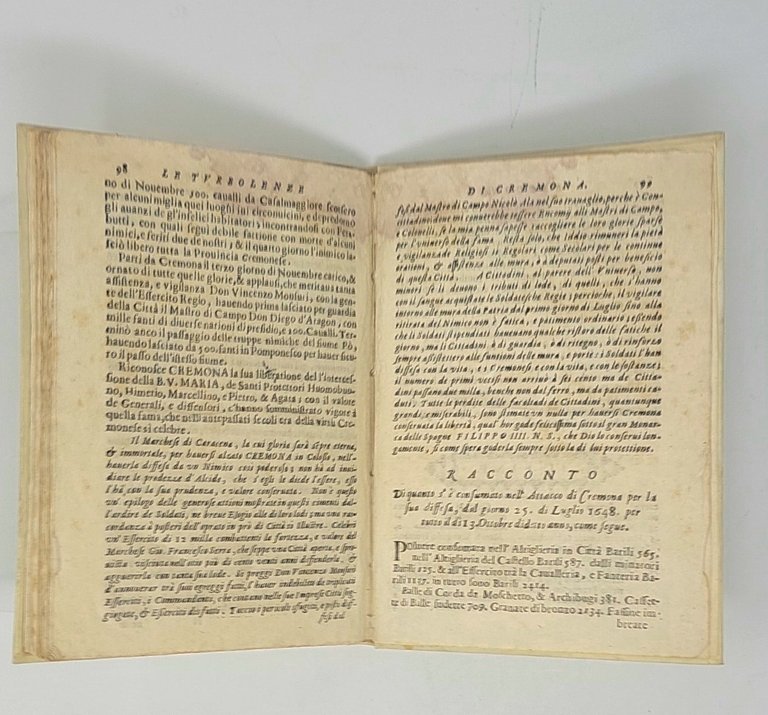 98 LE TVRBOLENZE
no di Nouembre 500. caualli da Casalmaggiore scorsero
per alcuni miglia quei luoghi sui circonuicini, e depredono
gli auanzi de gl'infelici habitatori; incontrandosi con Fera-
butti, con quali seguì debile fattione con morte d'alcuni
nimici, e feriti due de nostri; & il quarto giorno l'inimico la-
sciò libero tutta la Prouincia Cremonese.
Partì da Cremona il terzo giorno di Nouembre carico, &
ornato di tutte quelle glorie, & applausi, che meritaua tanta
assistenza, e vigilanza Don Vincenzo Monsuri, con la gen-
te dell'Essercito Regio, hauendo prima lasciato per guardia
della Città il Mastro di Campo Don Diego d'Aragon, con
mille fanti di diuerse nationi di presidio, e 100. Caualli. Ter-
minò anco il passaggio delle truppe nimiche del fiume Pò,
hauendo lasciato da 300. fanti in Pomponesco per hauer sicu-
ro il passo dell'istesso fiume.
Riconosce CREMONA la sua liberatione del l'interces-
sione della B. V. MARIA, de Santi Protettori Huomobuo-
no, Himerio, Marcellino, e Pietro, & Agata; con il valore
de Generali, e diffensori, c'hanno somministrato vigore à
quella fama, che nell'antepassati secoli era della virtù Cre-
monese sì celebre.
Il Marchese di Caracena, la cui gloria sarà sempre eterna,
& immortale, per hauersi alzato CREMONA in Colosso, nell'-
hauerla diffesa da vn Nimico così poderoso; non hà ad inui-
diare le prodezze d'Alcide, che s'egli le diede l'essere, esso
l'hà con la sua prudenza, e valore conseruata. Non è questo
vn'epilogo delle generose attioni mostrate in questi cimenti dal-
l'ardire de Soldati, ne breue Elogio alle di loro lodi; ma vna ra-
cordanza à posteri dell'oprato in prò di Città sì illustre. Celebri
vn'Essercito di 12 mila combattenti la fortezza, e valore del
Marchese Gio. Francesco Serra, che seppe vna Città aperta, e spro-
uista vscita nell'otio più di cento venti anni diffenderla, &
aguerrirla con tanta sua lode. Si preggi Don Vincenzo Monsuri
d'annouerar trà suoi egreggi fatti, l'hauer indebiliti de triplicati
Esserciti, i Commandanti, che contano nelle sue l'Imprese Città sog-
giogate, & Esserciti disfatti. Taccio i pericoli sfuggiti, e posti dif-
fesi dal
DI CREMONA. 99
fesi dal Mastro di Campo Nicolò Ala nel suo trauaglio, perche è Con-
cittadino; doue mi conuerebbe tessere Encomij alli Mastri di Campo,
e Colonelli, se la mia penna sapesse raccogliere le loro glorie sparse
per l'vniuerso della fama. Resta solo, che Iddio rimuneri la pietà
e vigilanza de Religiosi sì Regolari come Secolari per le continue
orationi, & assistenza alle mura, & à deputati posti per beneficio
di questa Città. A Cittadini, al parere dell'Vniuerso, non
meno se li deuono i tributi di lode, di quelli, che s'hanno
con il sangue acquistate le Soldatesche Regie; percioche, il vigilare
intorno alle mura della Patria dal primo giorno di Luglio sino alla
ritirata del Nimico non è fatica, e patimento ordinario; essendo
che li Soldati stipendiati haueano qualche ristoro delle fatiche il
giorno, ma li Cittadini, ò di guardia, ò di ritegno, ò di rinforzo
sempre assistettero alle funtioni delle mura, e porte: i Soldati l'han
diffesa con la vita, e i Cremonesi e con la vita, e con le sostanze;
il numero de primi vccisi non arriuò à sei cento ma de Citta-
dini passano due mila, benche non dal ferro, ma da patimenti ca-
duti. Tutte le perdite de faraltadi de Cittadini, quantunque
grandi, e miserabili, sono stimate vn nulla per hauersi Cremona
conseruata la libertà, qual hor gode felicissima sotto il gran Monar-
ca delle Spagne FILIPPO IIII. N. S., che Dio lo conserui lon-
gamente, sì come spera goder la sempre sotto la di lui protettione.
RACCONTO
Di quanto s'è consumato nell'Attacco di Cremona per la
sua diffesa, dal giorno 25. di Luglio 1648. per
tutto il dì 13. Ottobre di dato anno, come segue.
POluere consumata nell'Artiglieria in Città Barili 565.
nell'Artiglieria del Castello Barili 587. dalli minatori
Barili 125. & all'Essercito trà la Caualleria, e Fanteria Ba-
rili 1137. in tutto sono Barili 2414.
Balle di Corda da Moschetto, & Archibugi 381. Casset-
te di Balle sudette 709. Granate di bronzo 2134. Fassine im-
breate